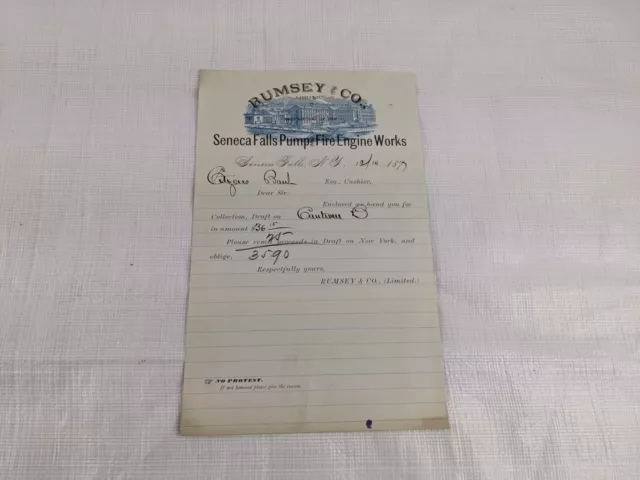 RUMSEY & CO.,
LIMITED.
Seneca Falls Pump and Fire Engine Works
Seneca Falls, N. Y. 12/10 1887
Citizens Bank Esq., Cashier.
Dear Sir:
Enclosed we hand you for
Collection, Draft on
in amount $36 15
25
Please remit proceeds in Draft on New York, and
oblige, 35 90
Respectfully yours,
RUMSEY & CO., (Limited.)
☞ NO PROTEST.
If not honored please give the reason.